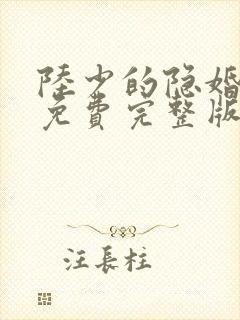 陸少的隐婚
免費完整版
汪長柱